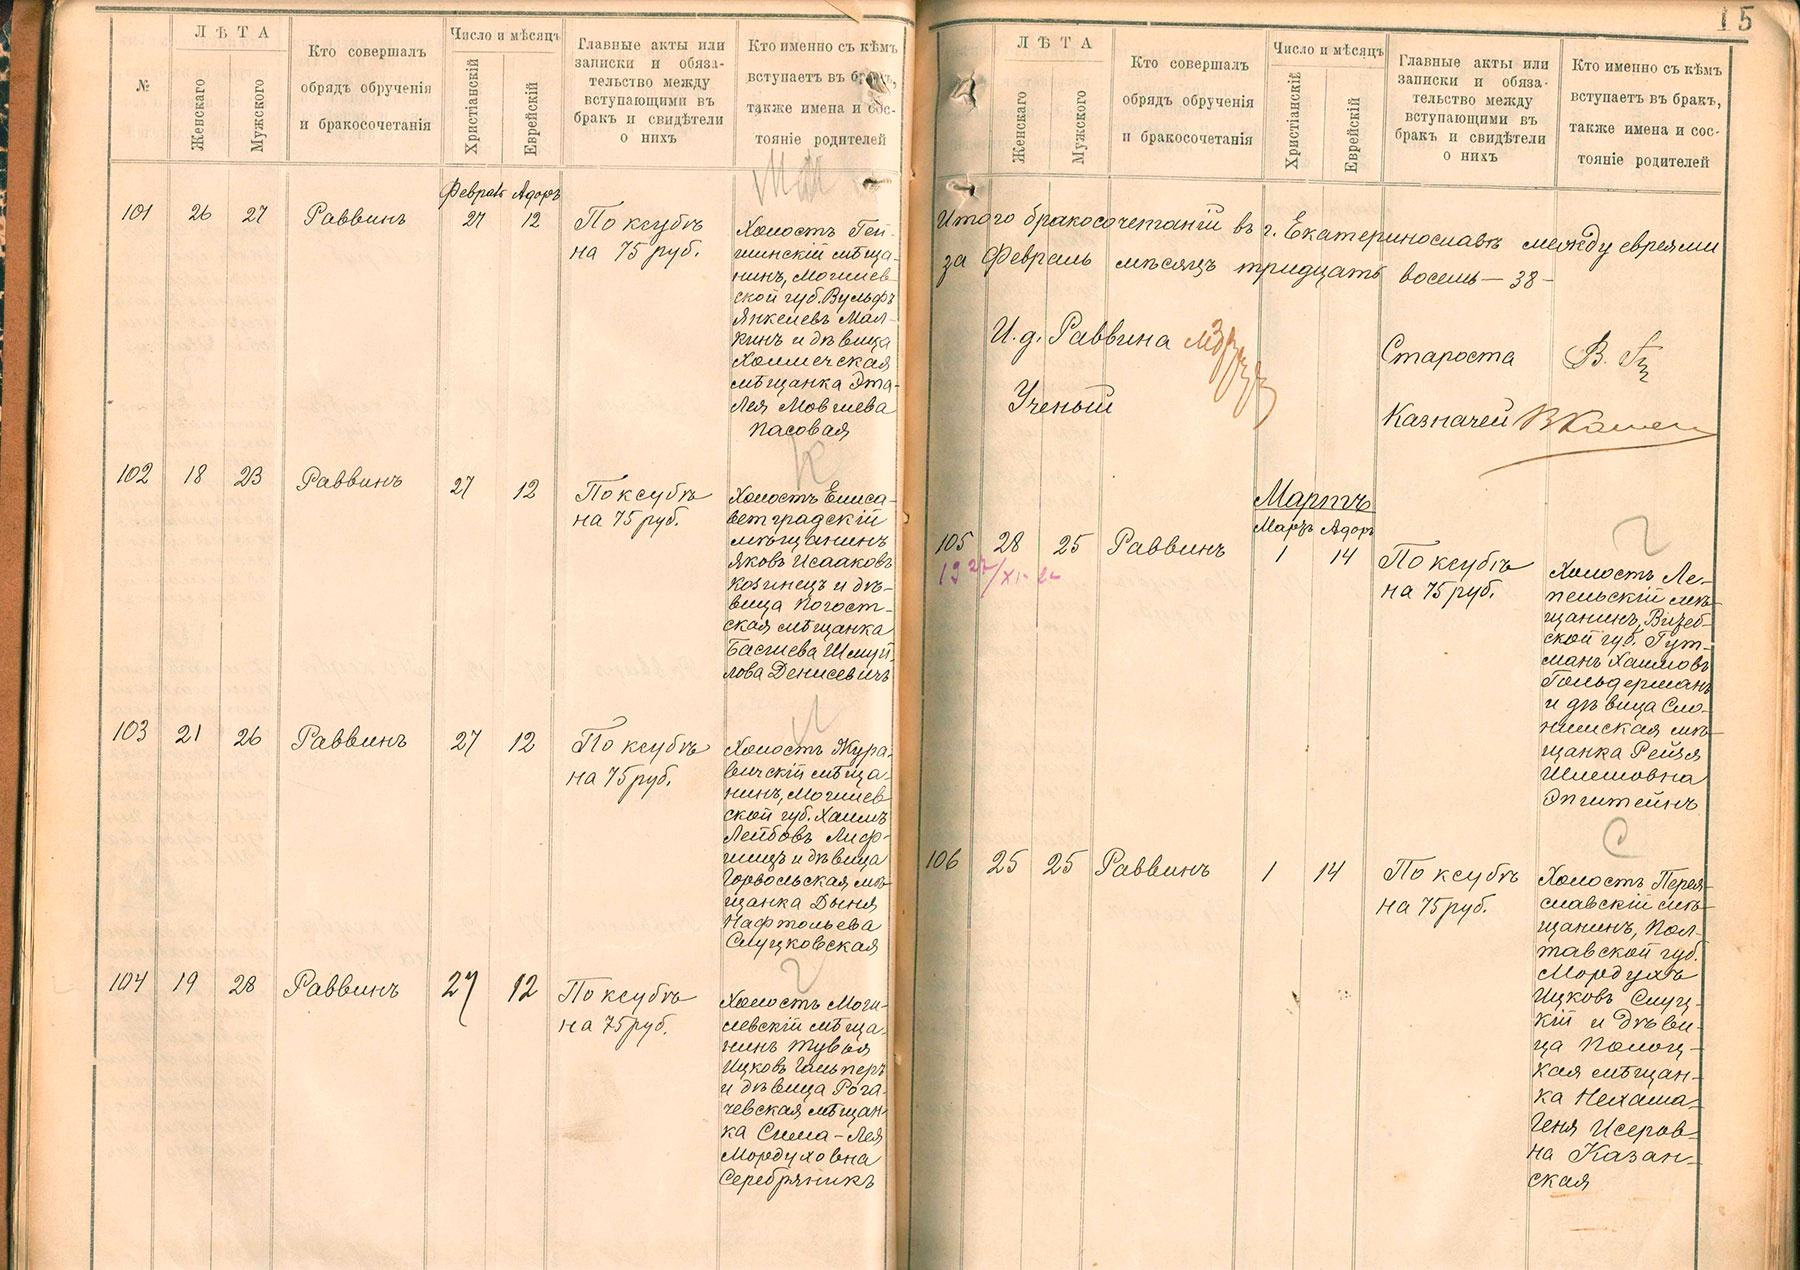 №
ЛѢТА
Женскаго
Мужского
Кто совершалъ
обрядъ обрученія
и бракосочетанія
Число и мѣсяцъ
Христіанскій
Еврейскій
Главные акты или
записки и обяза-
тельство между
вступающими въ
бракъ и свидѣтели
о нихъ
Кто именно съ кѣмъ
вступаетъ въ бракъ,
также имена и сос-
тояніе родителей
101
26
27
Раввинъ
Февраль Адоръ
27
12
По ксубѣ
на 75 руб.
Холостъ
шинскій мѣща-
нинъ, Могилев
ской губ. Вульфъ
Янкелевъ Мал-
кинъ и дѣвица
Холмечская
мѣщанка Эта-
Лея Мовшева
Пасовая
102
18
23
Раввинъ
27
12
По ксубѣ
на 75 руб.
К
Холостъ Елиса-
ветградскій
мѣщанинъ
Яковъ Исааковъ
Козинецъ и дѣ-
вица Погост-
ская мѣщанка
Басшева Шмуй
лова Денисевичъ
103
21
26
Раввинъ
27
12
По ксубѣ
на 75 руб.
Л
Холостъ Жура-
вичскій мѣща-
нинъ, Могилев
ской губ. Хаимъ
Лейбовъ Лиф-
шицъ и дѣвица
Горвольская мѣ-
щанка Дыня
Нафтольева
Слуцковская
104
19
28
Раввинъ
27
12
По ксубѣ
на 75 руб.
Г
Холостъ Моги-
левскій мѣща-
нинъ Тувья
Ицковъ Гальперъ
и дѣвица Рога-
чевская мѣщан-
ка Сима-Лея
Мордуховна
Серебряникъ
15
ЛѢТА
Женскаго
Мужского
Кто совершалъ
обрядъ обрученія
и бракосочетанія
Число и мѣсяцъ
Христіанскій
Еврейскій
Главные акты или
записки и обяза-
тельство между
вступающими въ
бракъ и свидѣтели
о нихъ
Кто именно съ кѣмъ
вступаетъ въ бракъ,
также имена и сос-
тояніе родителей
Итого бракосочетаній въ г. Екатеринославѣ между евреями
за Февраль мѣсяцъ тридцать восемь — 38 -
И. д. Раввина
Староста
В.
Ученый
Казначей
Мартъ
Мартъ Адоръ
105
28
25
Раввинъ
1
14
По ксубѣ
на 75 руб.
Г
Холостъ Ле-
пельскій мѣ-
щанинъ, Витеб-
ской губ. Гут-
манъ Хаимовъ
Гольдерманъ
и дѣвица Сло-
нимская мѣ-
щанка Рейзя
Шлемовна
Эпштейнъ
106
25
25
Раввинъ
1
14
По ксубѣ
на 75 руб.
С
Холостъ Перея-
славскій мѣ-
щанинъ, Пол-
тавской губ.
Мордухъ
Ицковъ Слуц-
кій и дѣви-
ца Полоц-
кая мѣщан-
ка Нехама-
Геня Исеров-
на Казан-
ская